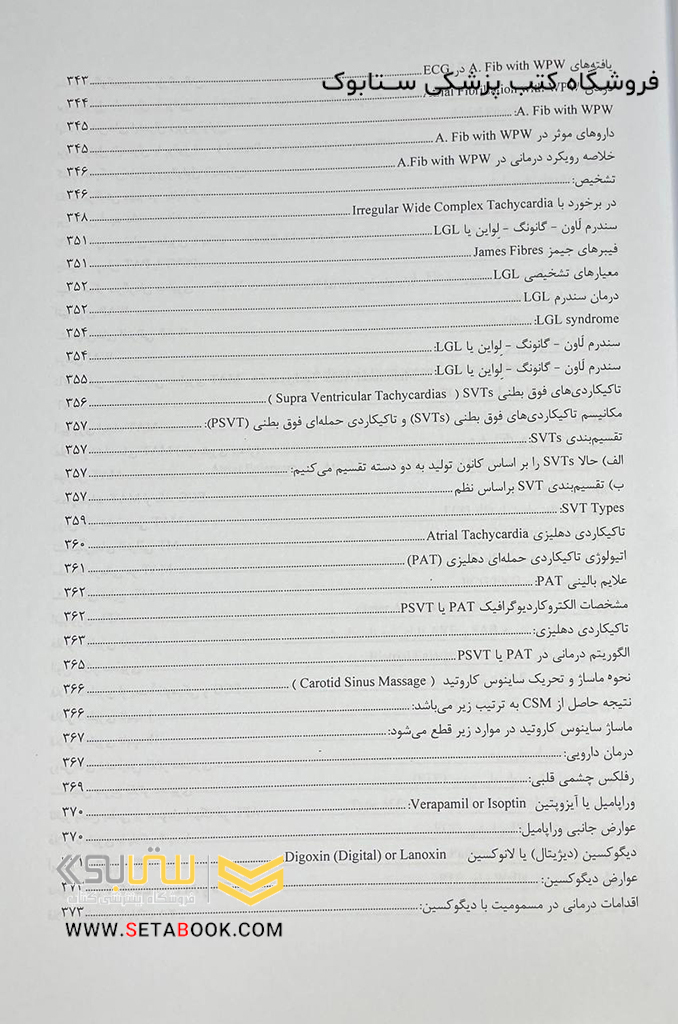 یافته‌های A. Fib with WPW در ECG ۳۴۳
فروشگاه کتب پزشکی ستابوک
Atrial Fibrillation with WPW ۳۴۴
A. Fib with WPW: ۳۴۵
داروهای موثر در A. Fib with WPW ۳۴۵
خلاصه رویکرد درمانی در A.Fib with WPW ۳۴۶
تشخیص: ۳۴۶
در برخورد با Irregular Wide Complex Tachycardia ۳۴۸
سندرم لَاون - گانونگ - لِواین یا LGL ۳۵۱
فیبرهای جیمز James Fibres ۳۵۱
معیارهای تشخیصی LGL ۳۵۲
درمان سندرم LGL ۳۵۲
LGL syndrome: ۳۵۴
سندرم لَاون - گانونگ - لِواین یا LGL: ۳۵۴
سندرم لَاون - گانونگ - لِواین یا LGL: ۳۵۵
تاکیکاردی‌های فوق بطنی SVTs ( Supra Ventricular Tachycardias ) ۳۵۶
مکانیسم تاکیکاردی‌های فوق بطنی (SVTs) و تاکیکاردی حمله‌ای فوق بطنی (PSVT): ۳۵۷
تقسیم‌بندی SVTs: ۳۵۷
الف) حالا SVTs را بر اساس کانون تولید به دو دسته تقسیم می‌کنیم: ۳۵۷
ب) تقسیم‌بندی SVT براساس نظم ۳۵۷
SVT Types: ۳۵۹
تاکیکاردی دهلیزی Atrial Tachycardia ۳۶۰
اتیولوژی تاکیکاردی حمله‌ای دهلیزی (PAT) ۳۶۱
علایم بالینی PAT: ۳۶۲
مشخصات الکتروکاردیوگرافیک PAT یا PSVT ۳۶۲
تاکیکاردی دهلیزی: ۳۶۳
الگوریتم درمانی در PAT یا PSVT ۳۶۵
نحوه ماساژ و تحریک ساینوس کاروتید ( Carotid Sinus Massage ) ۳۶۶
نتیجه حاصل از CSM به ترتیب زیر می‌باشد: ۳۶۶
ماساژ ساینوس کاروتید در موارد زیر قطع می‌شود: ۳۶۷
درمان دارویی: ۳۶۷
رفلکس چشمی قلبی: ۳۶۹
وراپامیل یا آیزوپتین Verapamil or Isoptin: ۳۷۰
عوارض جانبی وراپامیل: ۳۷۰
دیگوکسین (دیژیتال) یا لانوکسین Digoxin (Digital) or Lanoxin
عوارض دیگوکسین: ۳۷۱
اقدامات درمانی در مسمومیت با دیگوکسین: ۳۷۳
ستابوک
فروشگاه اینترنتی کتاب
WWW.SETABOOK.COM